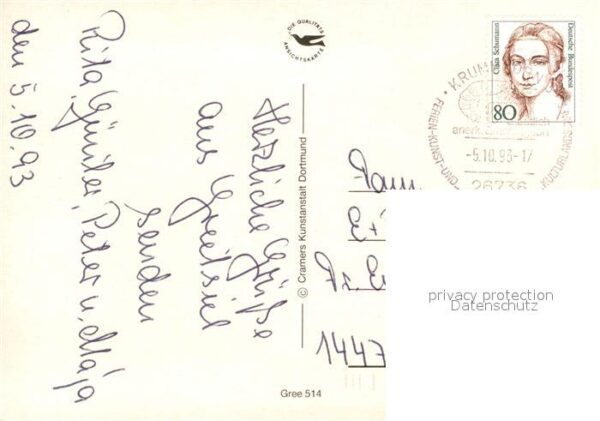 Herzliche Grüße
aus Greetsiel
senden
Rita, Günter, Peter u. Maja
den 5.10.93
DIE QUALITÄTS
ANSICHTSKARTE
© Cramers Kunstanstalt Dortmund
Gree 514
Clara Schumann
Deutsche Bundespost
80
-5.10.93-17
26736
FERIEN-KUNST-UND
Fam.
1447
privacy protection
Datenschutz